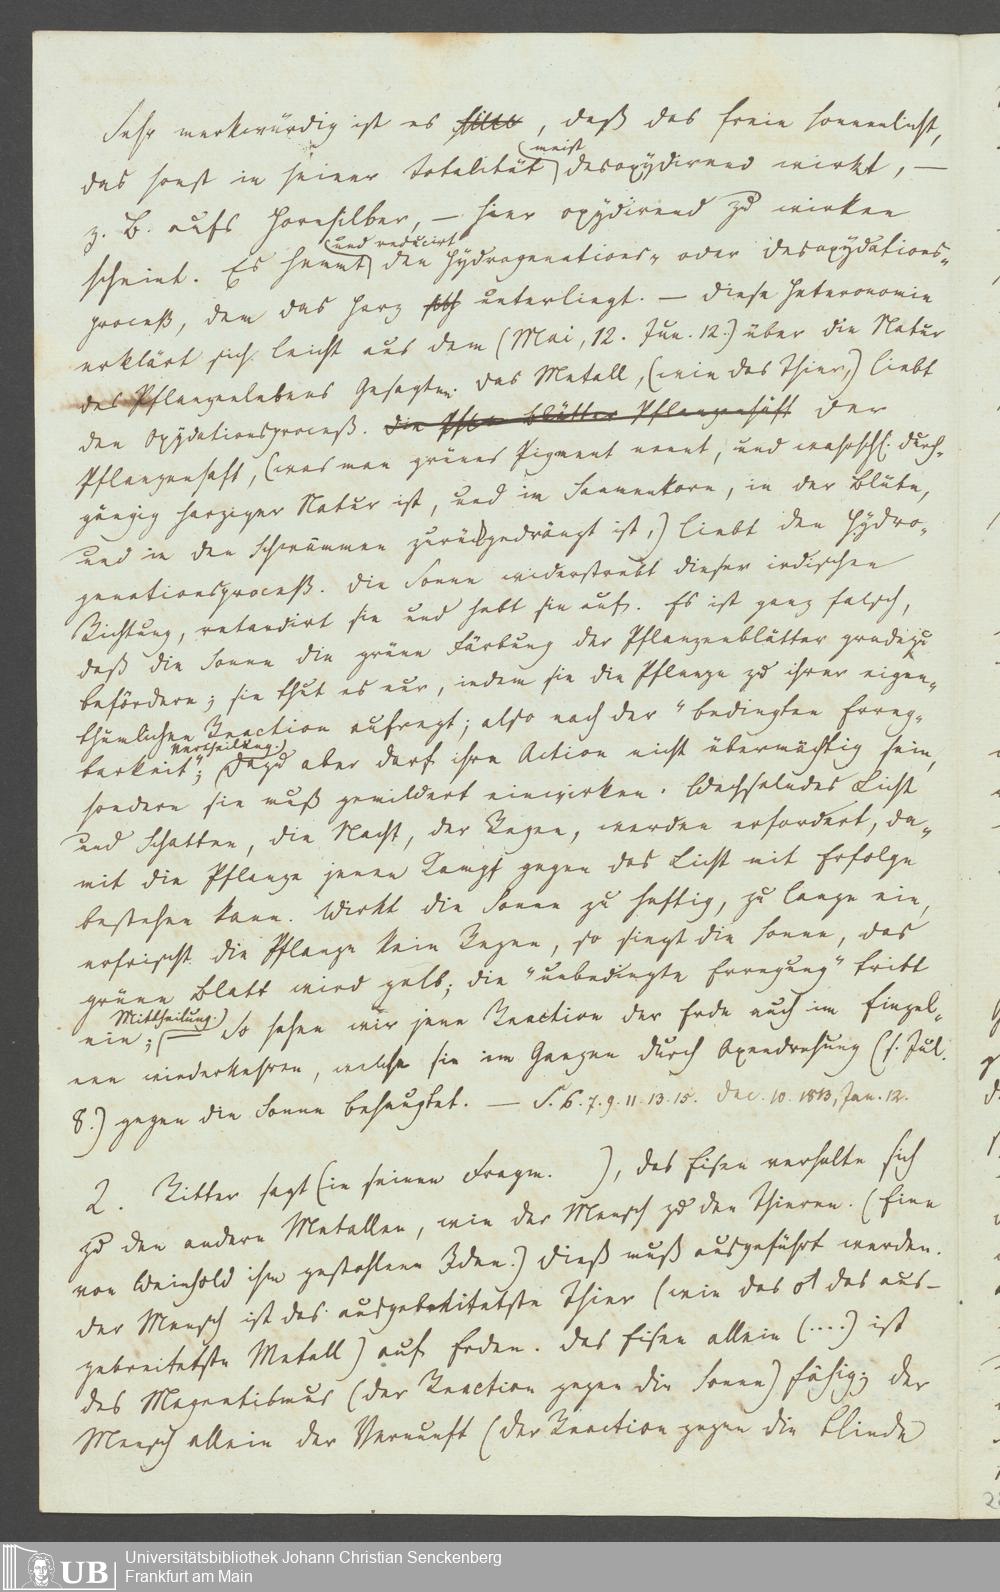 Sehr merkwürdig ist es , daß das freie Sonnenlicht,
das sonst in seiner Totalität (meist) desoxydirend wirkt, —
z. B. aufs Hornsilber, — hier oxydirend zu wirken
scheint. Es hemmt (und reducirt) den Hydrogenations- oder Desoxydations-
proceß, dem das Harz unterliegt. — Diese Heteronomie
erklärt sich leicht aus dem (Mai, 12. Jun. 12.) über die Natur
des Pflanzenlebens Gesagten. Das Metall, (wie das Thier,) liebt
den Oxydationsproceß. Die Blätter Pflanzensaft Der
Pflanzensaft, (was man grünes Pigment nennt, und wahrschl. durch-
gängig harziger Natur ist, und im Samenkorn, in der Blüte,
und in den Schwämmen zurückgedrängt ist,) liebt den Hydro-
genationsproceß. Die Sonne widerstrebt dieser irdischen
Richtung, retardirt sie und hebt sie auf. Es ist ganz falsch,
daß die Sonne die grüne Färbung der Pflanzenblätter gradezu
befördere; sie thut es nur, indem sie die Pflanze zu ihrer eigen-
thümlichen Reaction aufregt; also nach der "bedingten Erreg-
barkeit"; (Vertheilung.) Dazu aber darf ihre Action nicht übermächtig sein,
sondern sie muß gemildert einwirken. Wechselndes Licht
und Schatten, die Nacht, der Regen, werden erfordert, da-
mit die Pflanze jenen Kampf gegen das Licht mit Erfolge
bestehen kann. Wirkt die Sonne zu heftig, zu lange ein,
erfrischt die Pflanze kein Regen, so siegt die Sonne, das
grüne Blatt wird gelb; die "unbedingte Erregung" tritt
ein; (Mittheilung.) — So sehen wir jene Reaction der Erde auch im Einzel-
nen wiederkehren, welche sie im Ganzen durch Axendrehung (s. Jul.
8.) gegen die Sonne behauptet. — S. 6. 7. 9. 11. 13. 15. Dec. 10. 1813, Jan. 12.
2. Ritter sagt (in seinen Fragm. ), das Eisen verhalte sich
zu den andern Metallen, wie der Mensch zu den Thieren. (Eine
von Weinhold ihm gestohlene Idee.) Dieß muß ausgeführt werden.
Der Mensch ist das ausgebreitetste Thier (wie das das aus-
gebreitetste Metall) auf Erden. Das Eisen allein (....) ist
des Magnetismus (der Reaction gegen die Sonne) fähig; der
Mensch allein der Vernunft (der Reaction gegen die blinde
UB
Universitätsbibliothek Johann Christian Senckenberg
Frankfurt am Main